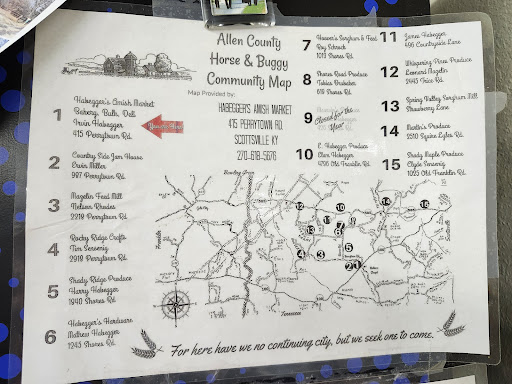 Allen County
Horse & Buggy
Community Map
Map Provided by:
HABEGGER'S AMISH MARKET
415 PERRYTOWN RD.
SCOTTSVILLE KY
270-618-5676
1
Habegger's Amish Market
Bakery, Bulk, Deli
Irvin Habegger
415 Perrytown Rd.
You're Here!
2
Country Side Jam House
Erwin Miller
997 Perrytown Rd.
3
Mazelin Feed Mill
Nelson Rhodes
2219 Perrytown Rd.
4
Rocky Ridge Crafts
Tim Swoenig
2919 Perrytown Rd.
5
Shady Ridge Produce
Harry Habegger
1940 Shores Rd.
6
Habegger's Hardware
Mathew Habegger
1245 Shores Rd.
7
Hoover's Sorghum & Feed
Ray Schrock
1013 Shores Rd.
8
Shores Road Produce
Tobias Brubaker
Shores Rd.
9
Closed for the
Year
10
L. Habegger Produce
Clam Habegger
Old Franklin Rd.
11
James Habegger
Countryside Lane
12
Whispering Pines Produce
Leonard Mazelin
Rd.
13
Spring Valley Sorghum Mill
Strawberry Lane
14
Martin's Produce
2510 Squire Lyles Rd.
15
Shady Maple Produce
Clyde Swoenig
1025 Old Franklin Rd.
Bowling Green
Scottsville
Tennessee
12
10
14
15
11
13
9
7
8
6
5
4
3
2
1
For here have we no continuing city, but we seek one to come.